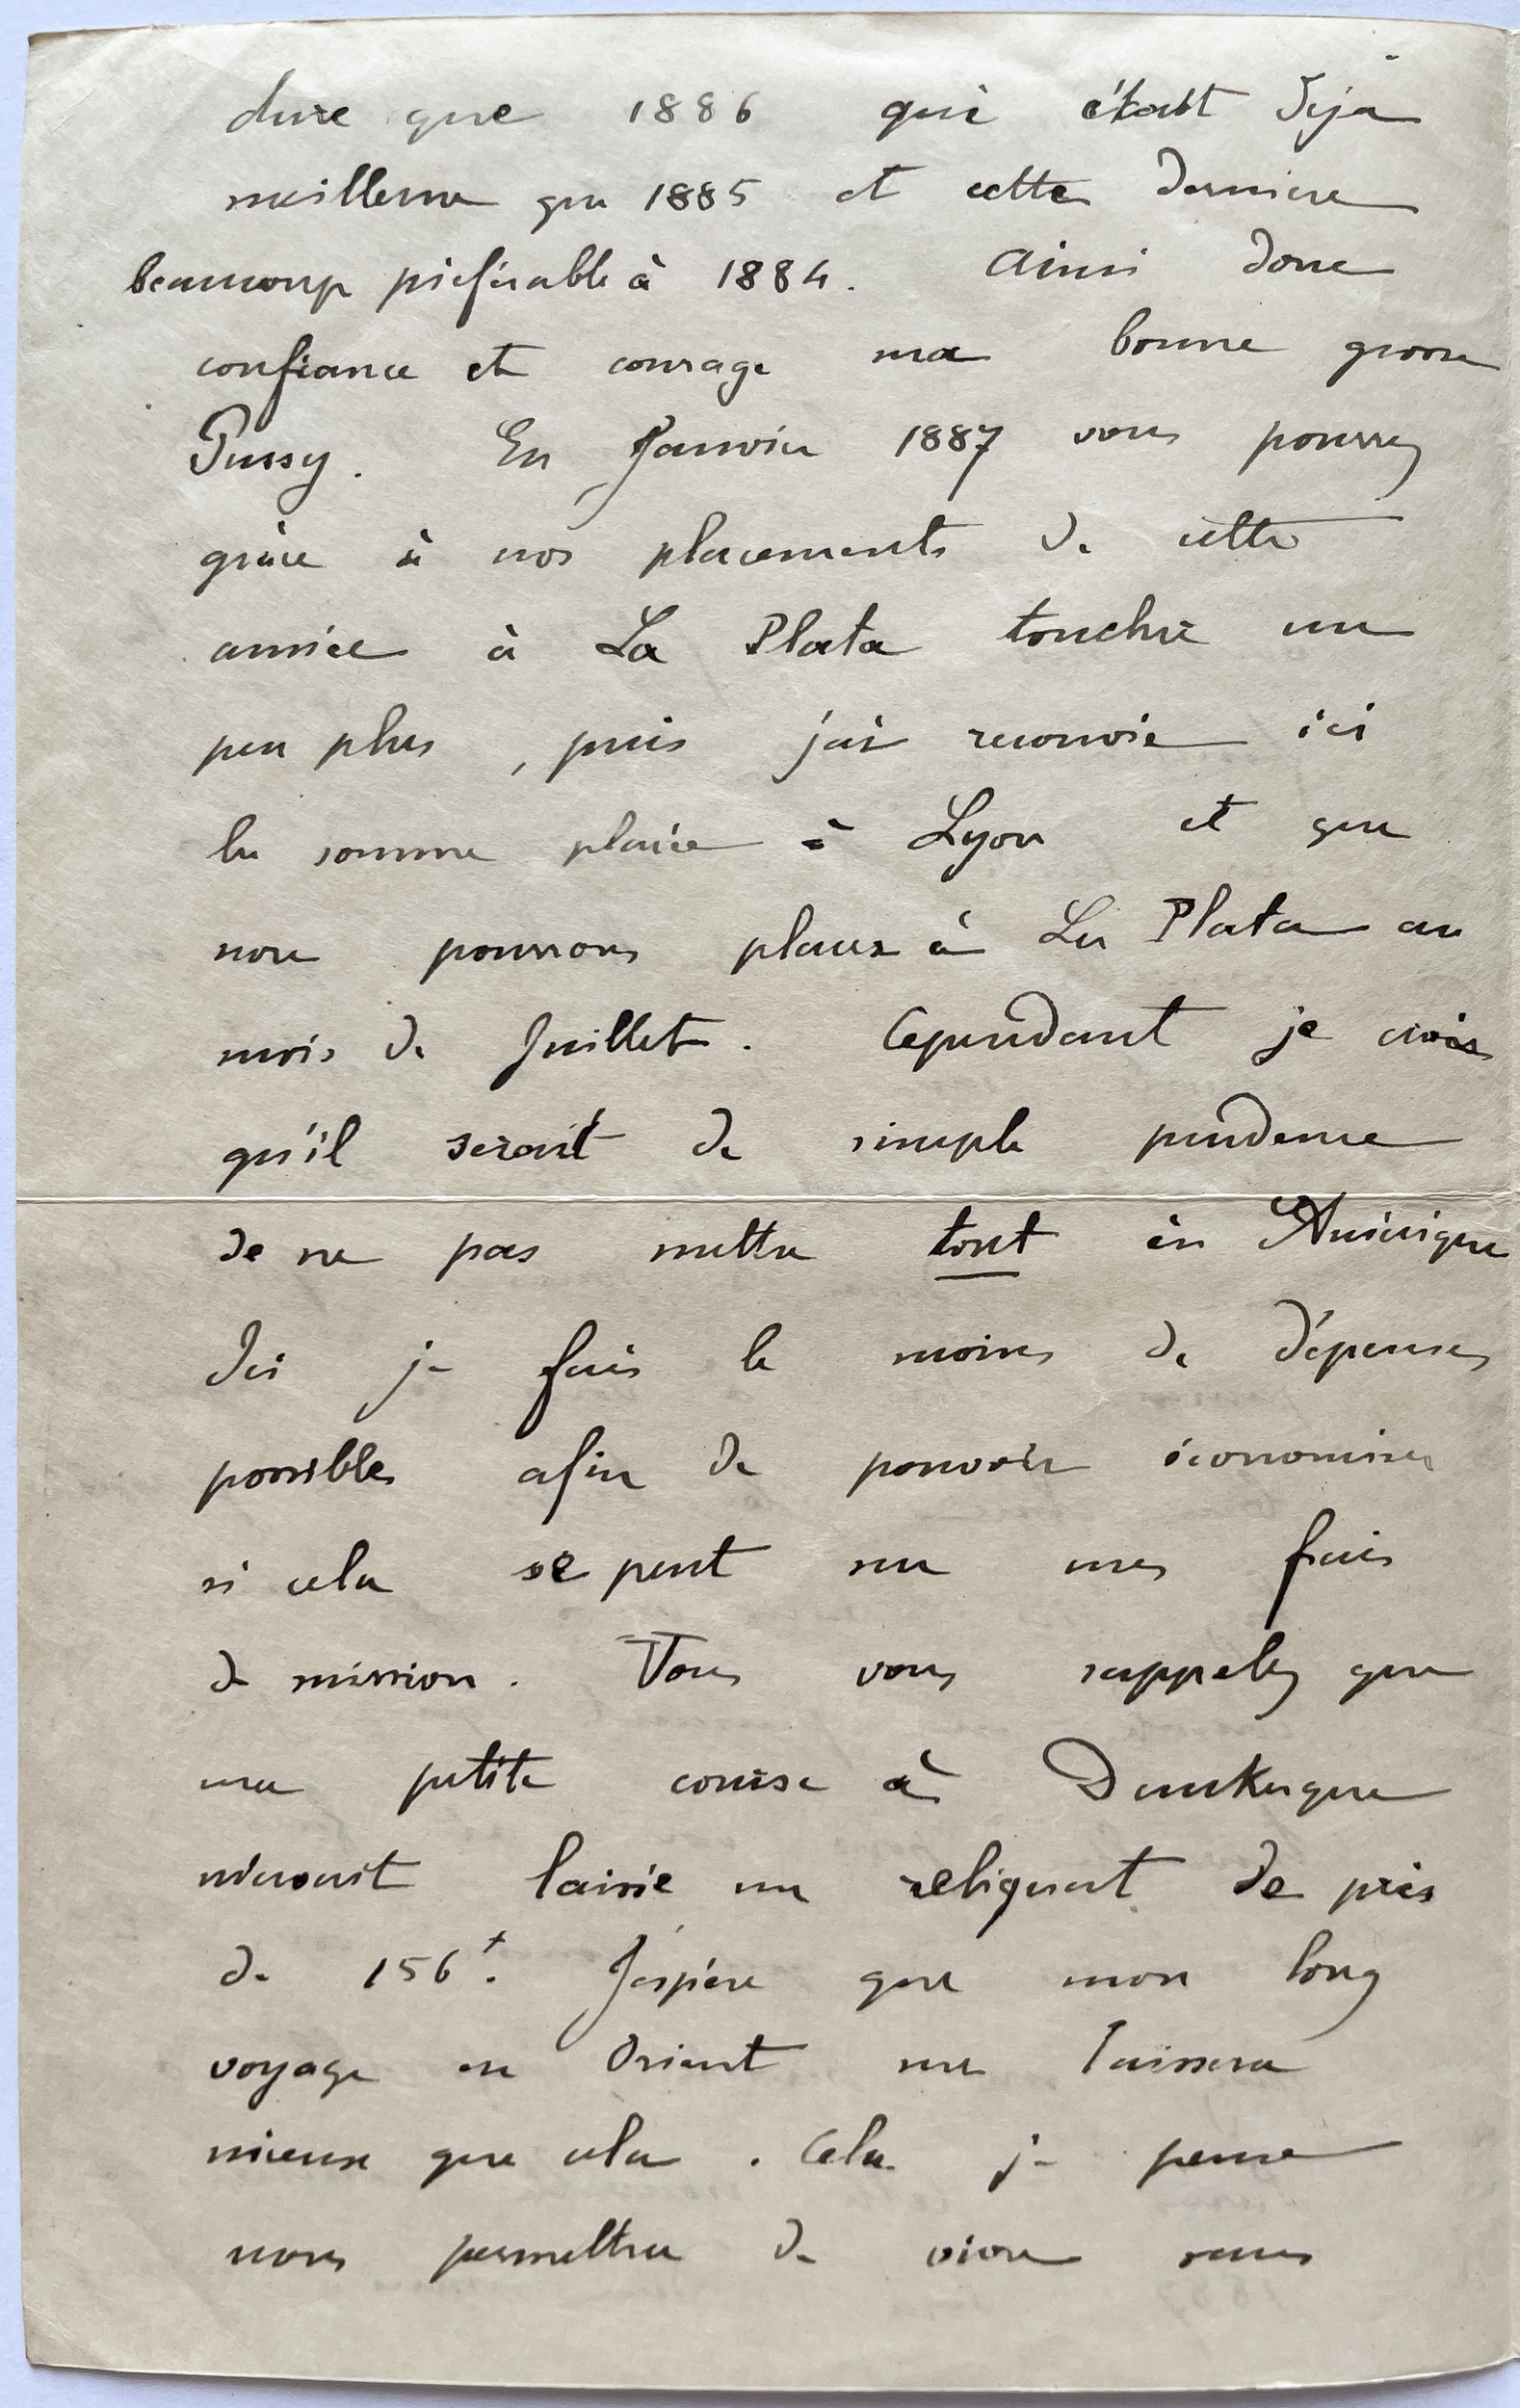 dure que 1886 qui était déjà
meilleure que 1885 et cette dernière
beaucoup préférable à 1884. Ainsi donc
confiance et courage ma bonne grosse
Pussy. En Janvier 1887 vous pourrez
grâce à nos placements de cette
année à La Plata toucher un
peu plus, puis j'ai renvoié ici
la somme placée à Lyon et que
nous pourrons placer à La Plata au
mois de Juillet. Cependant je crois
qu'il serait de simple prudence
de ne pas mettre tout en Amérique
Ici je fais le moins de dépenses
possibles afin de pouvoir économiser
si cela se peut sur mes frais
de mission. Vous vous rappelez que
ma petite course à Dunkerque
m'avait laissé un reliquat de près
de 156f. J'espère que mon long
voyage en Orient me laissera
mieux que cela. Cela je pense
nous permettra de vivre sans